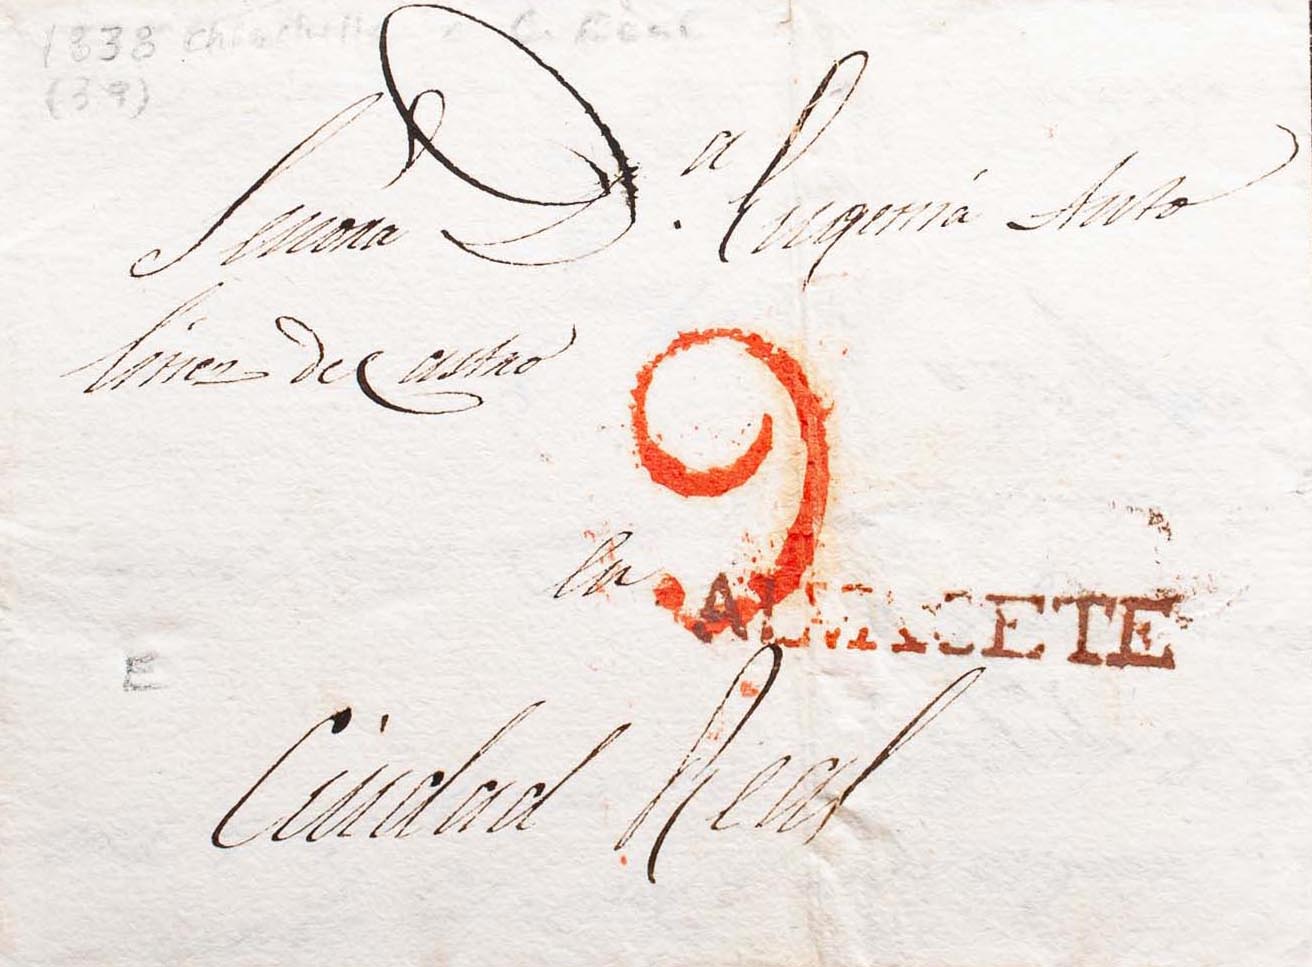 1838 Chinchilla a C. Real
(39)
Senora D.ª Eugenia Anto
linez de Castro
9
en
ALBACETE
E
Ciudad Real